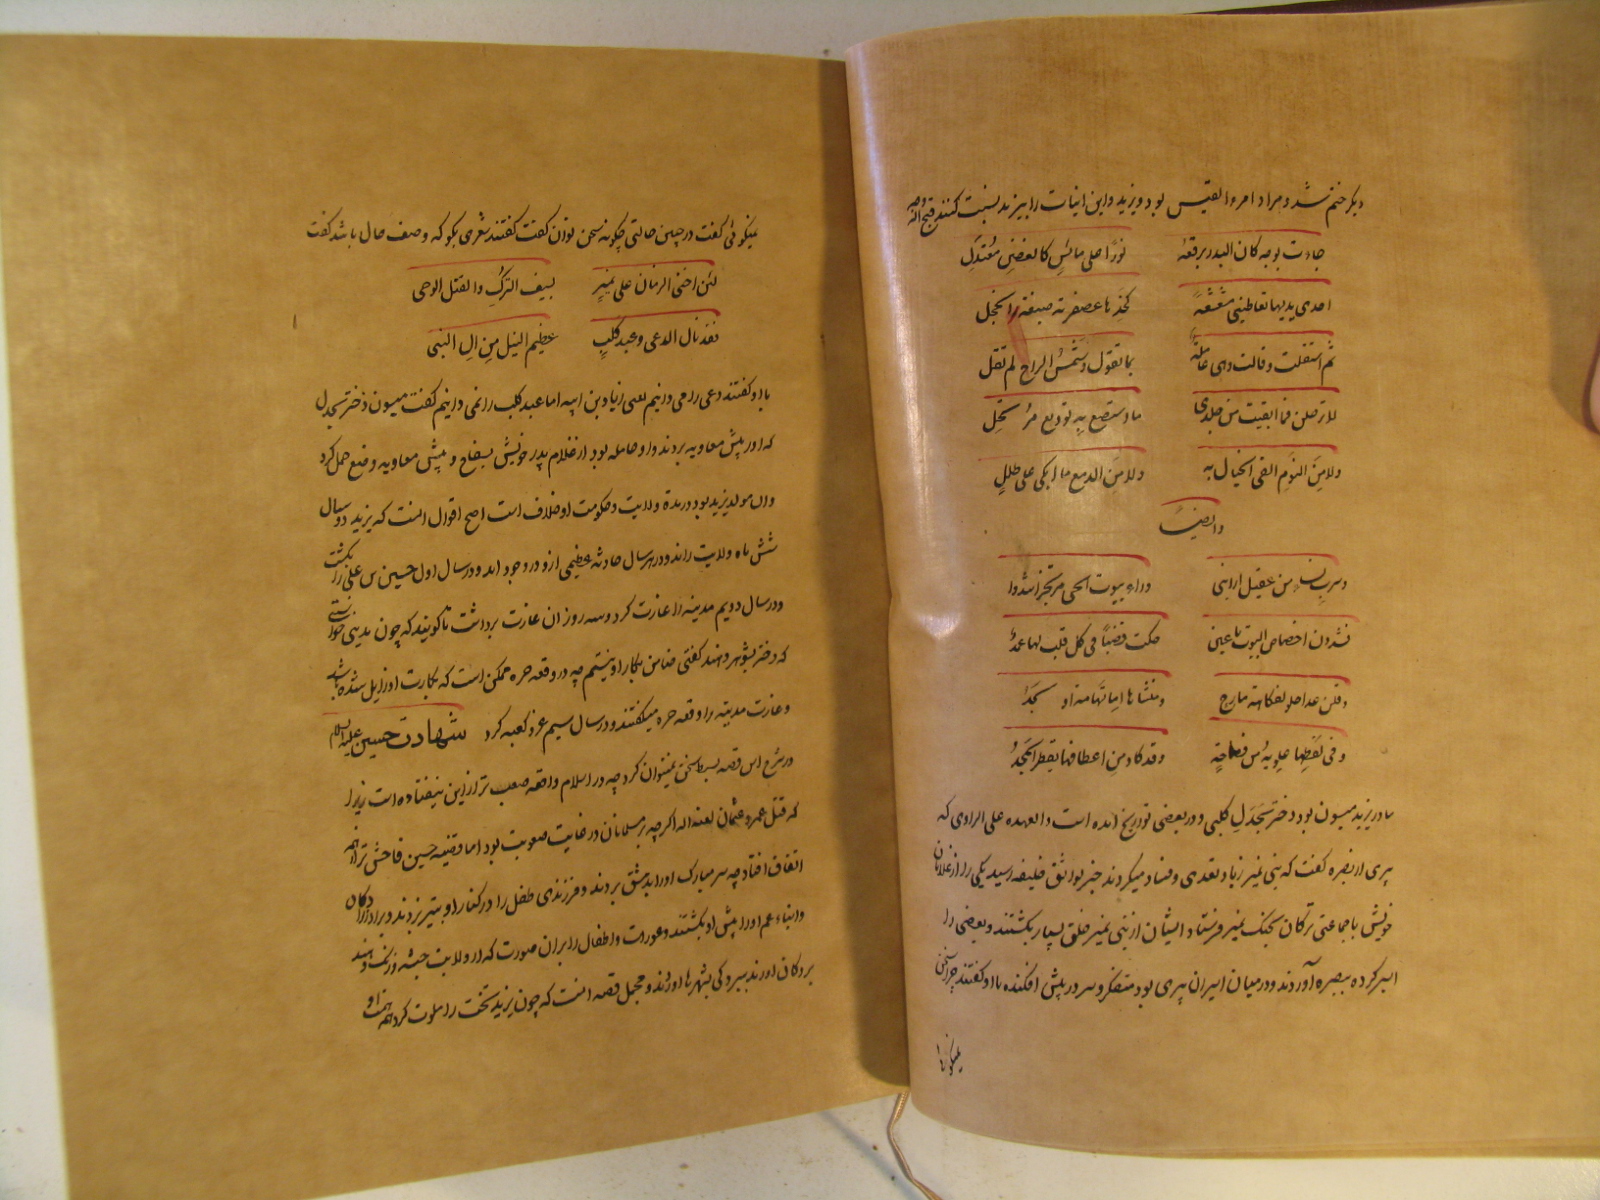 دیگر ختم شد و مراد امرء القیس بود و یزید و این ابیات را بیزید نسبت کنند قبح الله وجهه
جاءت بوجه کان البدر برقعهٔ نورًا علی مائسٍ کالغصنِ معتدلِ
احدی یدیها تعاطینی مشعشعةً کخدها عصفرته صبغة الخجل
ثم استقلت و قالت وهی عاملةٌ بما تقول و شمسُ الراح لم تقل
لا ترحلن فما ابقیت من جلدی ما استطیع به تودیع مرتحلِ
ولا منَ النومِ القی الخیال به ولا منَ الدمع ما ابکی علی طللِ
وایضاً
وسربِ نساءٍ من عقیل اراننی وراء بیوت الحی مرتجزا شدوا
فسددن اخصاص البیوت باعین حکت قضبًا فی کل قلب لها غمدُ
وقلن علا اصلو لفکاهة مازح ومنشاها اما تهامة او نجدُ
وفی لفظها علویة من فصاحةٍ وقد کاد من اعطافها یقطر المجدُ
مادر یزید میسون بود دختر بَجدلِ کلبی و در بعضی تواریخ آمده است والعهده علی الراوی که
پیری از بصره گفت که بنی نمیر زیاد تعدی و فساد میکردند خبر بواثق خلیفه رسید یکی را از غلامان
خویش با جماعتی ترکان بجنک نمیر فرستاد ایشان از بنی نمیر خلق بسیار بکشتند و بعضی را
اسیر کرده ببصره آوردند و در میان اسیران پیری بود متفکر و سر در پیش افکنده با او گفتند چرا سخن
نمیکوئی
نمیکوئی گفت در چنین حالتی چکونه سخن توان گفت گفتند شعری بکو که وصف حال باشد گفت
لئن اخنی الزمان علی نمیرٍ بسیف الترکِ والقتل الوحی
فقد نال الدعی و عبد کلبٍ عظیم النیل من الِ النبی
با او گفتند دعی را می دانیم لعنی زیاد بن ابیه اما عبد کلب را نمی دانیم گفت میسون دختر بجدل
که او را پیش معاویه بردند و او حامله بود از غلام پدر خویش بسفاح و پیش معاویه وضع حمل کرد
وان مولد یزید بود در مدة ولایت و حکومت او خلاف است اصح اقوال انست که یزید دو سال
شش ماه ولایت راند و در هر سال حادثه عظیمی ازو در وجود امد و در سال اول حسین بن علی را بکشت
و در سال دویم مدینه را غارت کرد و سه روز ان غارت برداشت تا کویند که چون مدینی خواستی
که دختر بشوهر دهد گفتی ضامن بکار او نیستم چه در وقعه حره ممکن است که بکارت او زایل شده باشد
و غارت مدینه را وقعه حره میکفتند و در سال سیم غزو کعبه کرد شهادت حسین علیه السلام
در شرح این قصه بسط سخن نمیتوان کرد چه در اسلام واقعه صعب تر از این نیفتاده است زیرا
که قتل عمر و عثمان لعنه الله اکرچه بر مسلمانان در غایت صعوبت بود اما قضیه حسین فاحش تر از همه
اتفاق افتاد چه سر مبارک او را بدمشق بردند و فرزندی طفل را در کنار او بتیر زدند و برادرزادکان
و ابناء عم او را پیش او بکشتند و عورات و اطفال را بر ان صورت که از ولایت حبشه و زنک و هند
بردکان اورند ببردکی بشهرها اوردند و مجمل قصه انست که چون یزید بتخت را ملوث کرد همه همت او